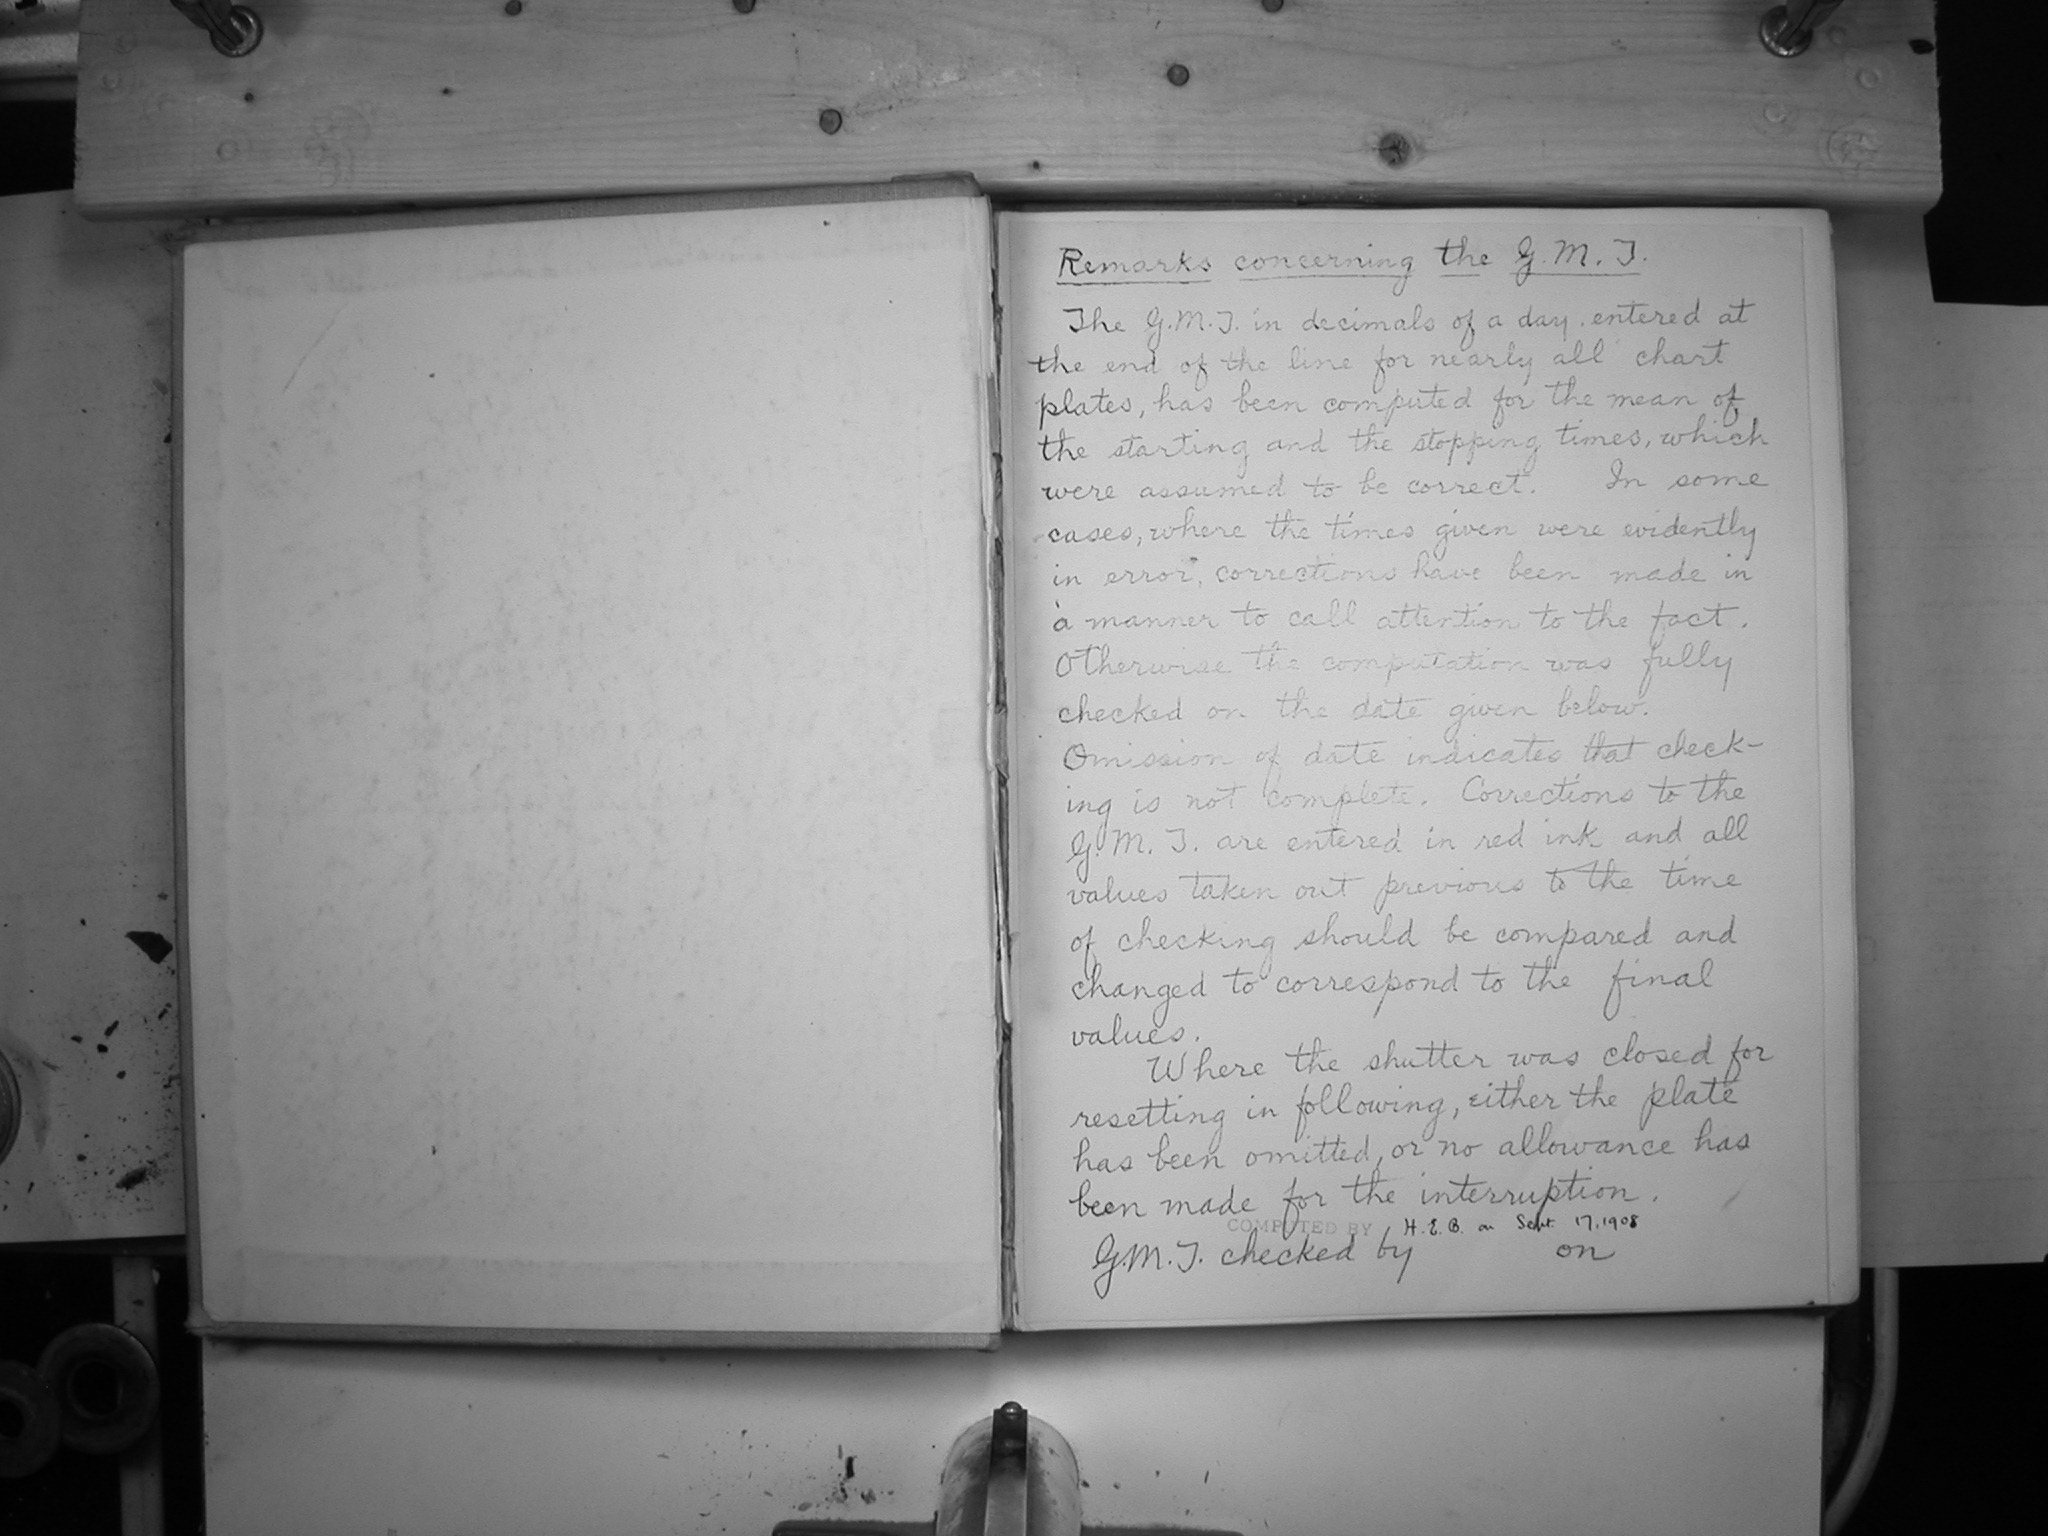 Remarks concerning the G.M.T.
The G.M.T. in decimals of a day entered at
the end of the line for nearly all chart
plates, has been computed for the mean of
the starting and the stopping times, which
were assumed to be correct. In some
cases, where the times given were evidently
in error, corrections have been made in
a manner to call attention to the fact.
Otherwise the computation was fully
checked on the date given below.
Omission of date indicates that check-
ing is not complete. Corrections to the
G.M.T. are entered in red ink and all
values taken out previous to the time
of checking should be compared and
changed to correspond to the final
values.
Where the shutter was closed for
resetting in following, either the plate
has been omitted, or no allowance has
been made for the interruption.
COMPUTED BY H.E.B. on Sept. 17, 1908
G.M.T. checked by on